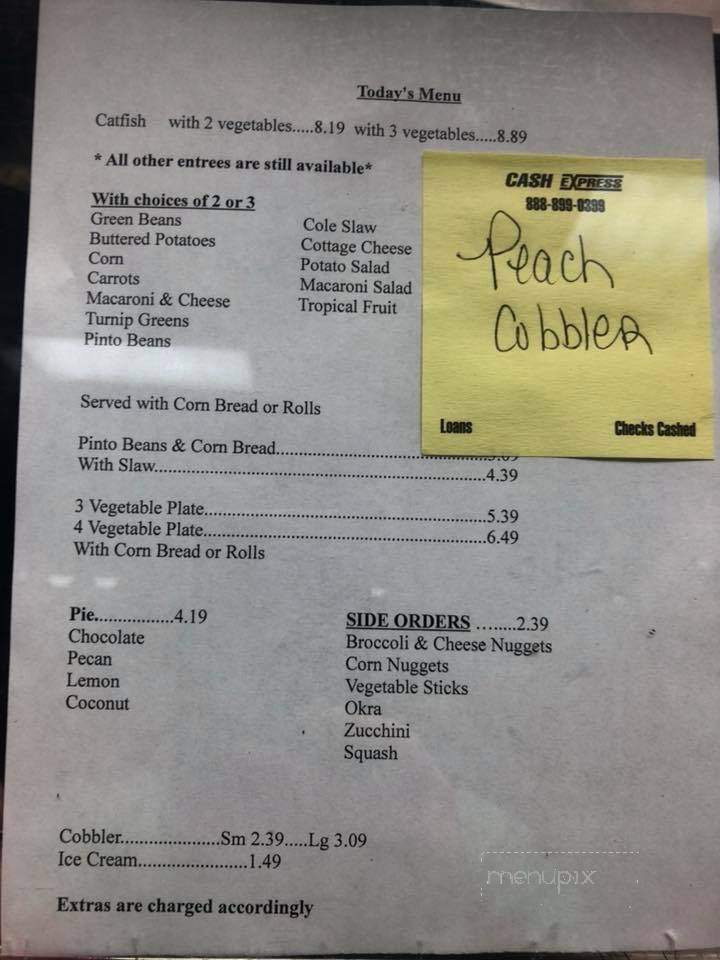 Today's Menu
Catfish with 2 vegetables.....8.19 with 3 vegetables.....8.89
* All other entrees are still available*
With choices of 2 or 3
Green Beans
Buttered Potatoes
Corn
Carrots
Macaroni & Cheese
Turnip Greens
Pinto Beans
Cole Slaw
Cottage Cheese
Potato Salad
Macaroni Salad
Tropical Fruit
CASH EXPRESS
888-899-0399
Peach
Cobbler
Loans Checks Cashed
Served with Corn Bread or Rolls
Pinto Beans & Corn Bread
With Slaw.......................................................................4.39
3 Vegetable Plate............................................................5.39
4 Vegetable Plate............................................................6.49
With Corn Bread or Rolls
Pie.................4.19
Chocolate
Pecan
Lemon
Coconut
SIDE ORDERS ........2.39
Broccoli & Cheese Nuggets
Corn Nuggets
Vegetable Sticks
Okra
Zucchini
Squash
Cobbler.....................Sm 2.39.....Lg 3.09
Ice Cream.......................1.49
Extras are charged accordingly
menupix